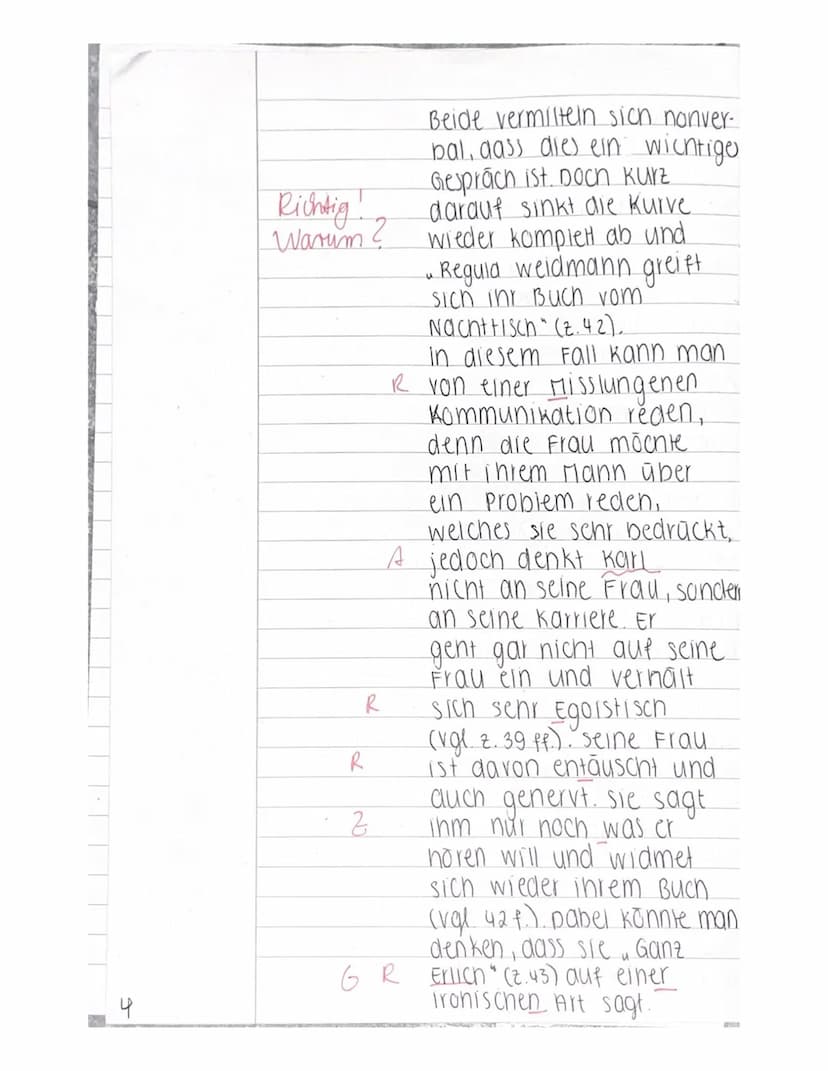 Beide vermitteln sich nonver-
bal, dass dies ein wichtiges
Gespräch ist. Doch kurz
Richtig! darauf sinkt die Kurve
Warum? wieder komplett ab und
„Regula weidmann greift
sich ihr Buch vom
Nachttisch" (z.42).
in diesem Fall kann man
R von einer Misslungenen
Kommunikation reden,
denn die Frau möchte
mit ihrem Mann über
ein Problem reden,
welches sie sehr bedrückt,
A jedoch denkt Karl
nicht an seine Frau, sondern
an seine Karriere. Er
geht gar nicht auf seine
Frau ein und verhält
R sich sehr Egoistisch
(vgl. z. 39 ff.). seine Frau
R ist davon entäuscht und
auch genervt. sie sagt
Z ihm nur noch was er
hören will und widmet
sich wieder ihrem Buch
(vgl. 42 f.). Dabei könnte man
denken, dass sie „Ganz
G R Erlich" (z.43) auf einer
4 ironischen Art sagt.